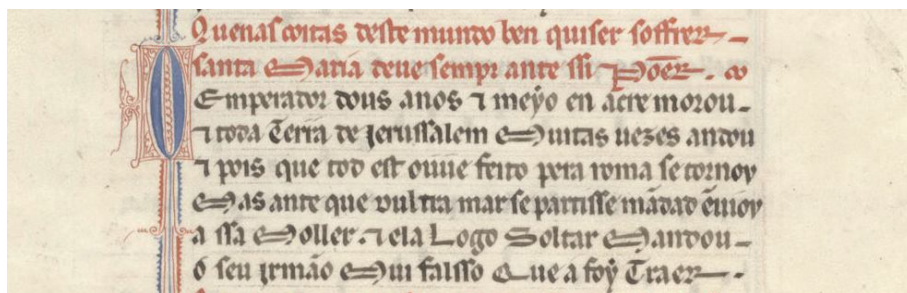 Quenas coitas deste mundo ben quiser soffrer
santa Maria deue sempr ante ssi põer.
O Emperador dous anos ⁊ meyo en acre morou
⁊ toda Terra de jerussalem Muitas uezes andou
⁊ pois que tod est ouue feito pera roma se tornoy
Mas ante que dultra mar se partisse mãdad ẽuioy
a ssa Moller. ⁊ ela Logo Soltar Mandou
o seu jrmão Mui falsso Que a foy Traer.